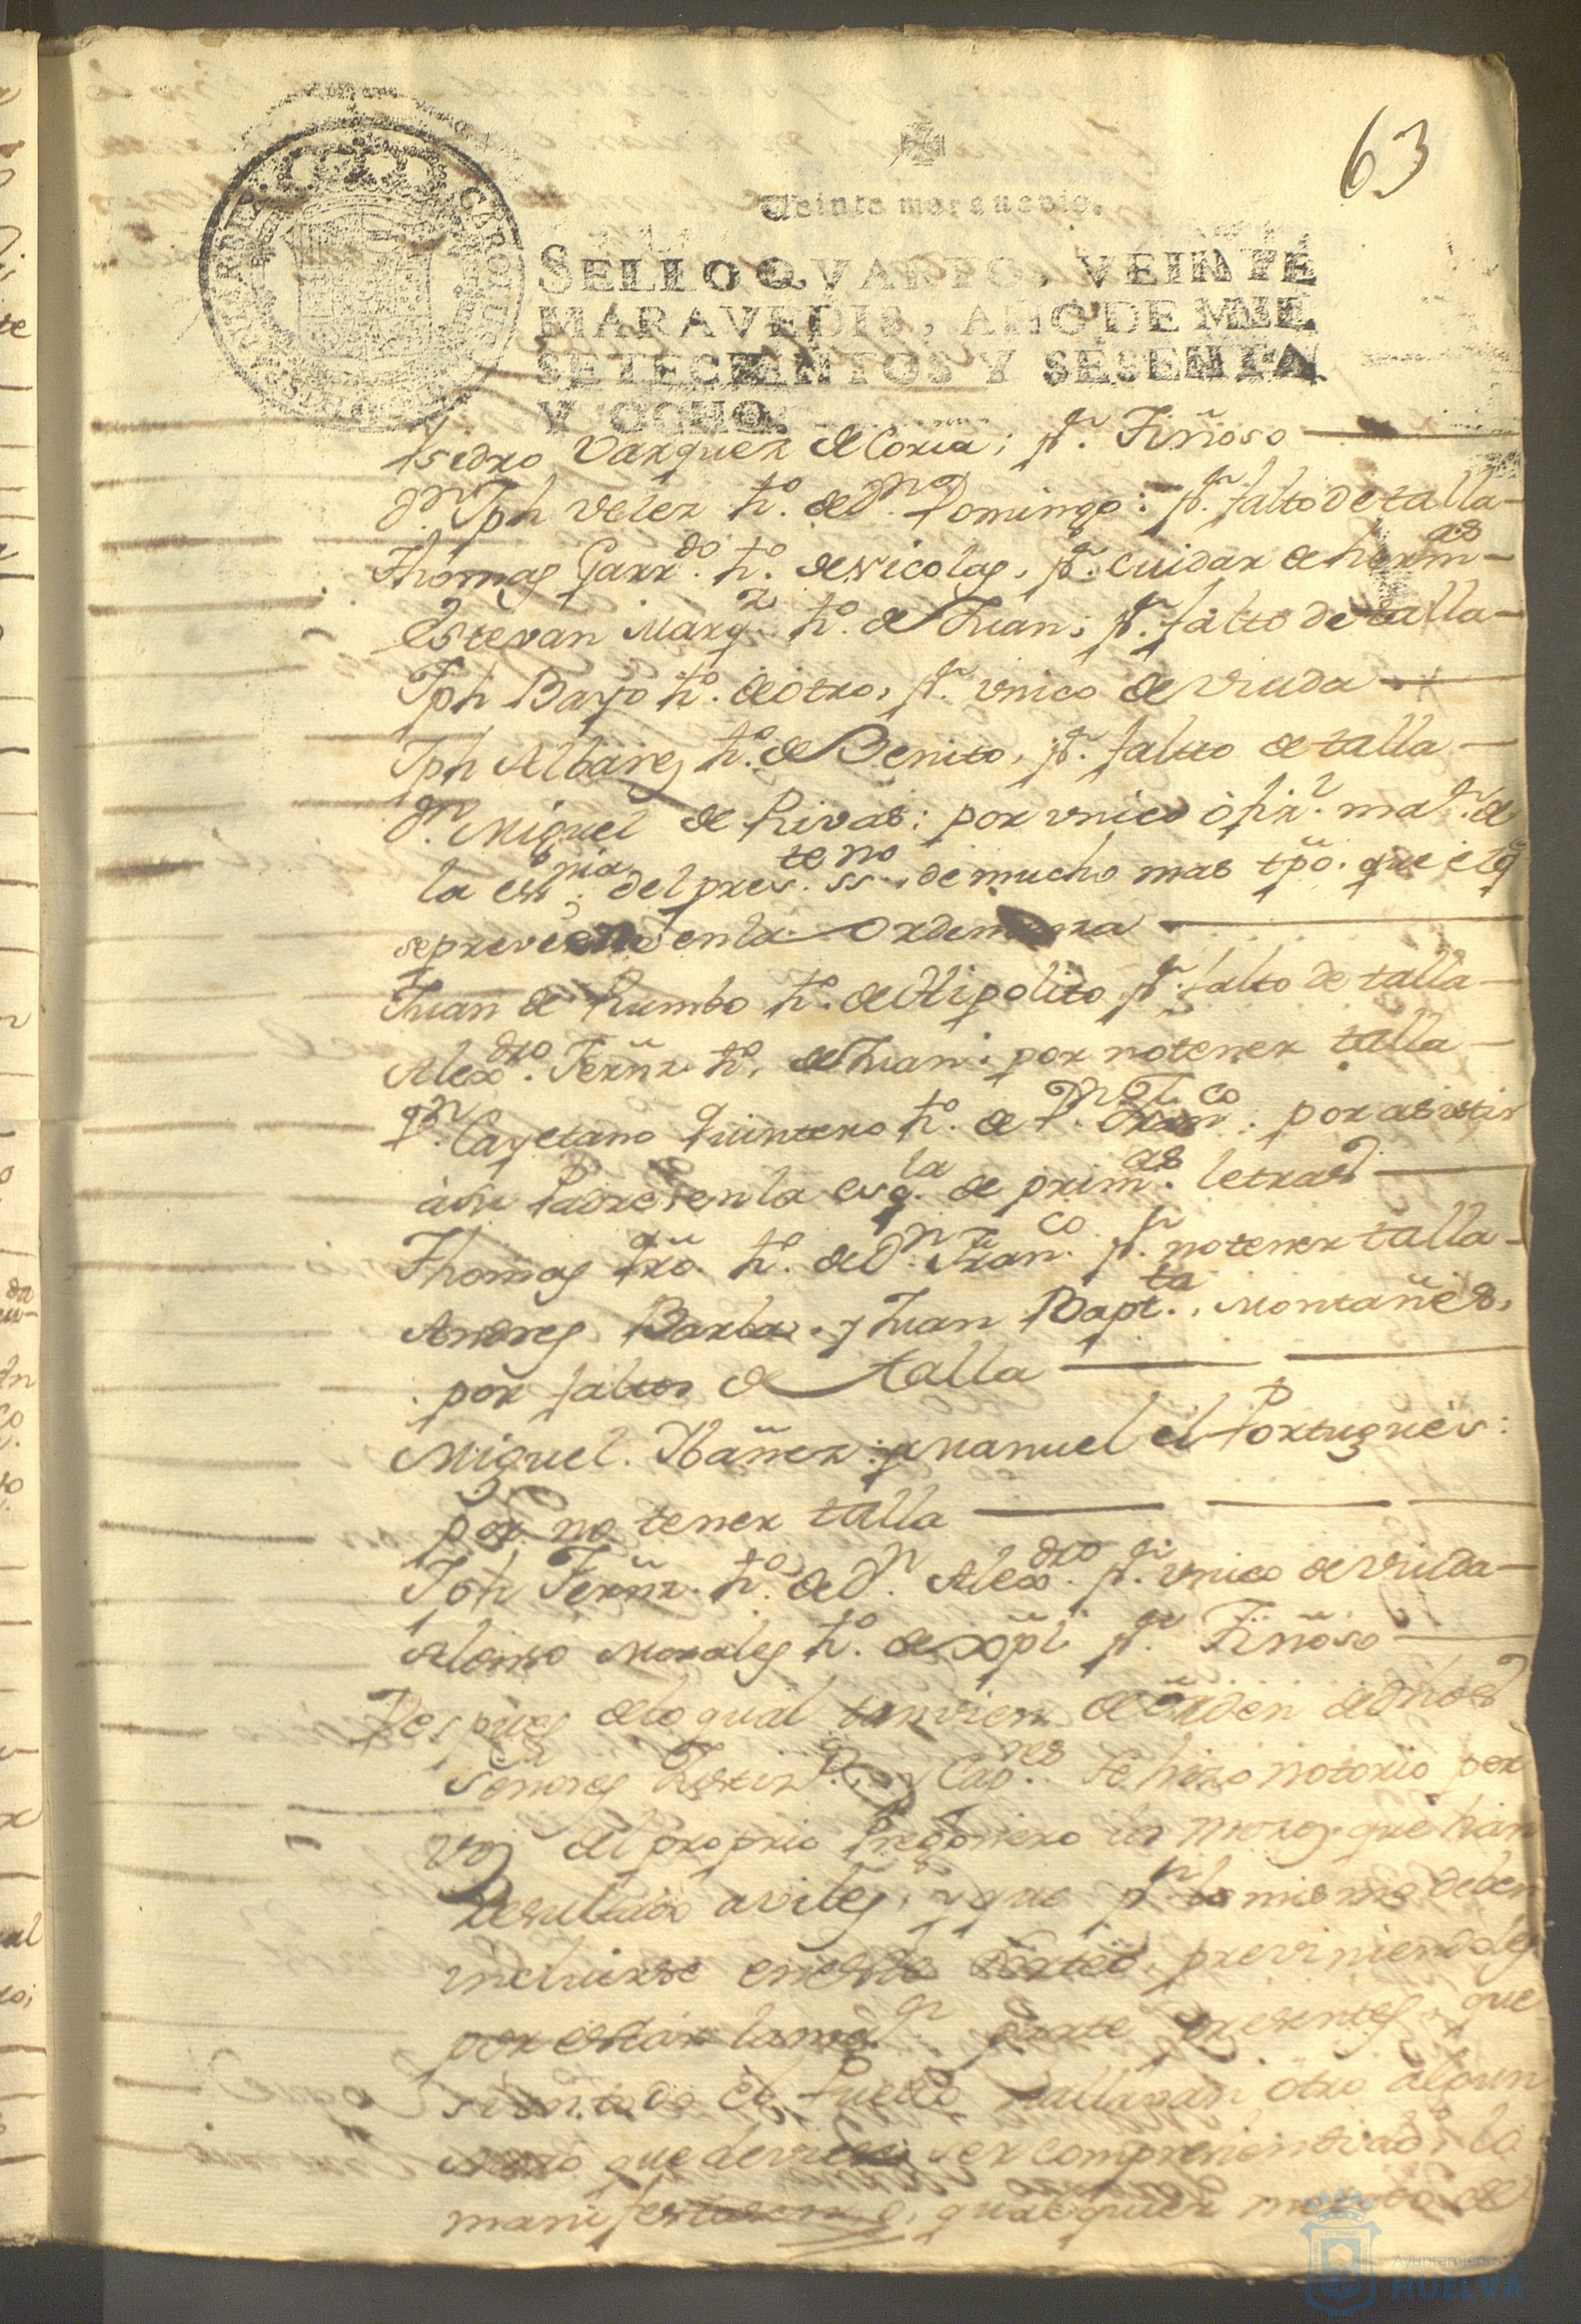 63
Veinte maravedis.
SELLO QVARTO, VEINTE
MARAVEDIS, AÑO DE MIL
SETECIENTOS Y SESENTA
Y OCHO.
Isidro Vazquez de Coria; pr. Tiñoso
Dn. Jph Velez ho. de Dn. Domingo: pr. falto de talla
Thomas Garrdo. ho. de Nicolas, pr. cuidar de hermas
Estevan Marqz. ho. de Juan; pr. falto de talla
Jph Bayo ho. de otro, pr. vnico de viuda
Jph Albares ho. de Benito, pr. falto de talla
Dn. Miguel de Rivas: por vnico ofizl. mar. de
la essnia. del preste. ssno. de mucho mas tpo. que el q
se previene en la Ordenanza
Juan de Rumbo ho. de Hipolito pr. falto de talla
Alexdro. Fernz. ho. de Juan: por no tener talla
Dn. Cayetano Quintero ho. de Dn. Franco. por asistir
à su Padre en la esqla. de primas. letras
Thomas Qro. ho. de Dn. Franco. pr. no tener talla
Andres Barba y Juan Bapta. Montañes,
por faltos de talla
Miguel Ibañez: y Manuel el Portugues:
por no tener talla
Jph Fernz. ho. de Dn. Alexdro. pr. vnico de viuda
Alonso Morales ho. de Xpl pr. Tiñoso
Despues de lo qual tanvien de orden de dhos
Señores Justiza. y Capres. se hizo notorio por
voz del proprio Pregonero los mozos que han
resultado aviles, y que pr. lo mismo deben
incluirse en este sorteo, previniendoles
por estar la mar. parte presentes, que
si en todo el Pueblo hallavan otro algun
mozo que deviera ser comprehentivado, lo
manifestasen, o, qualquier de
Ayuntamiento
HUELVA